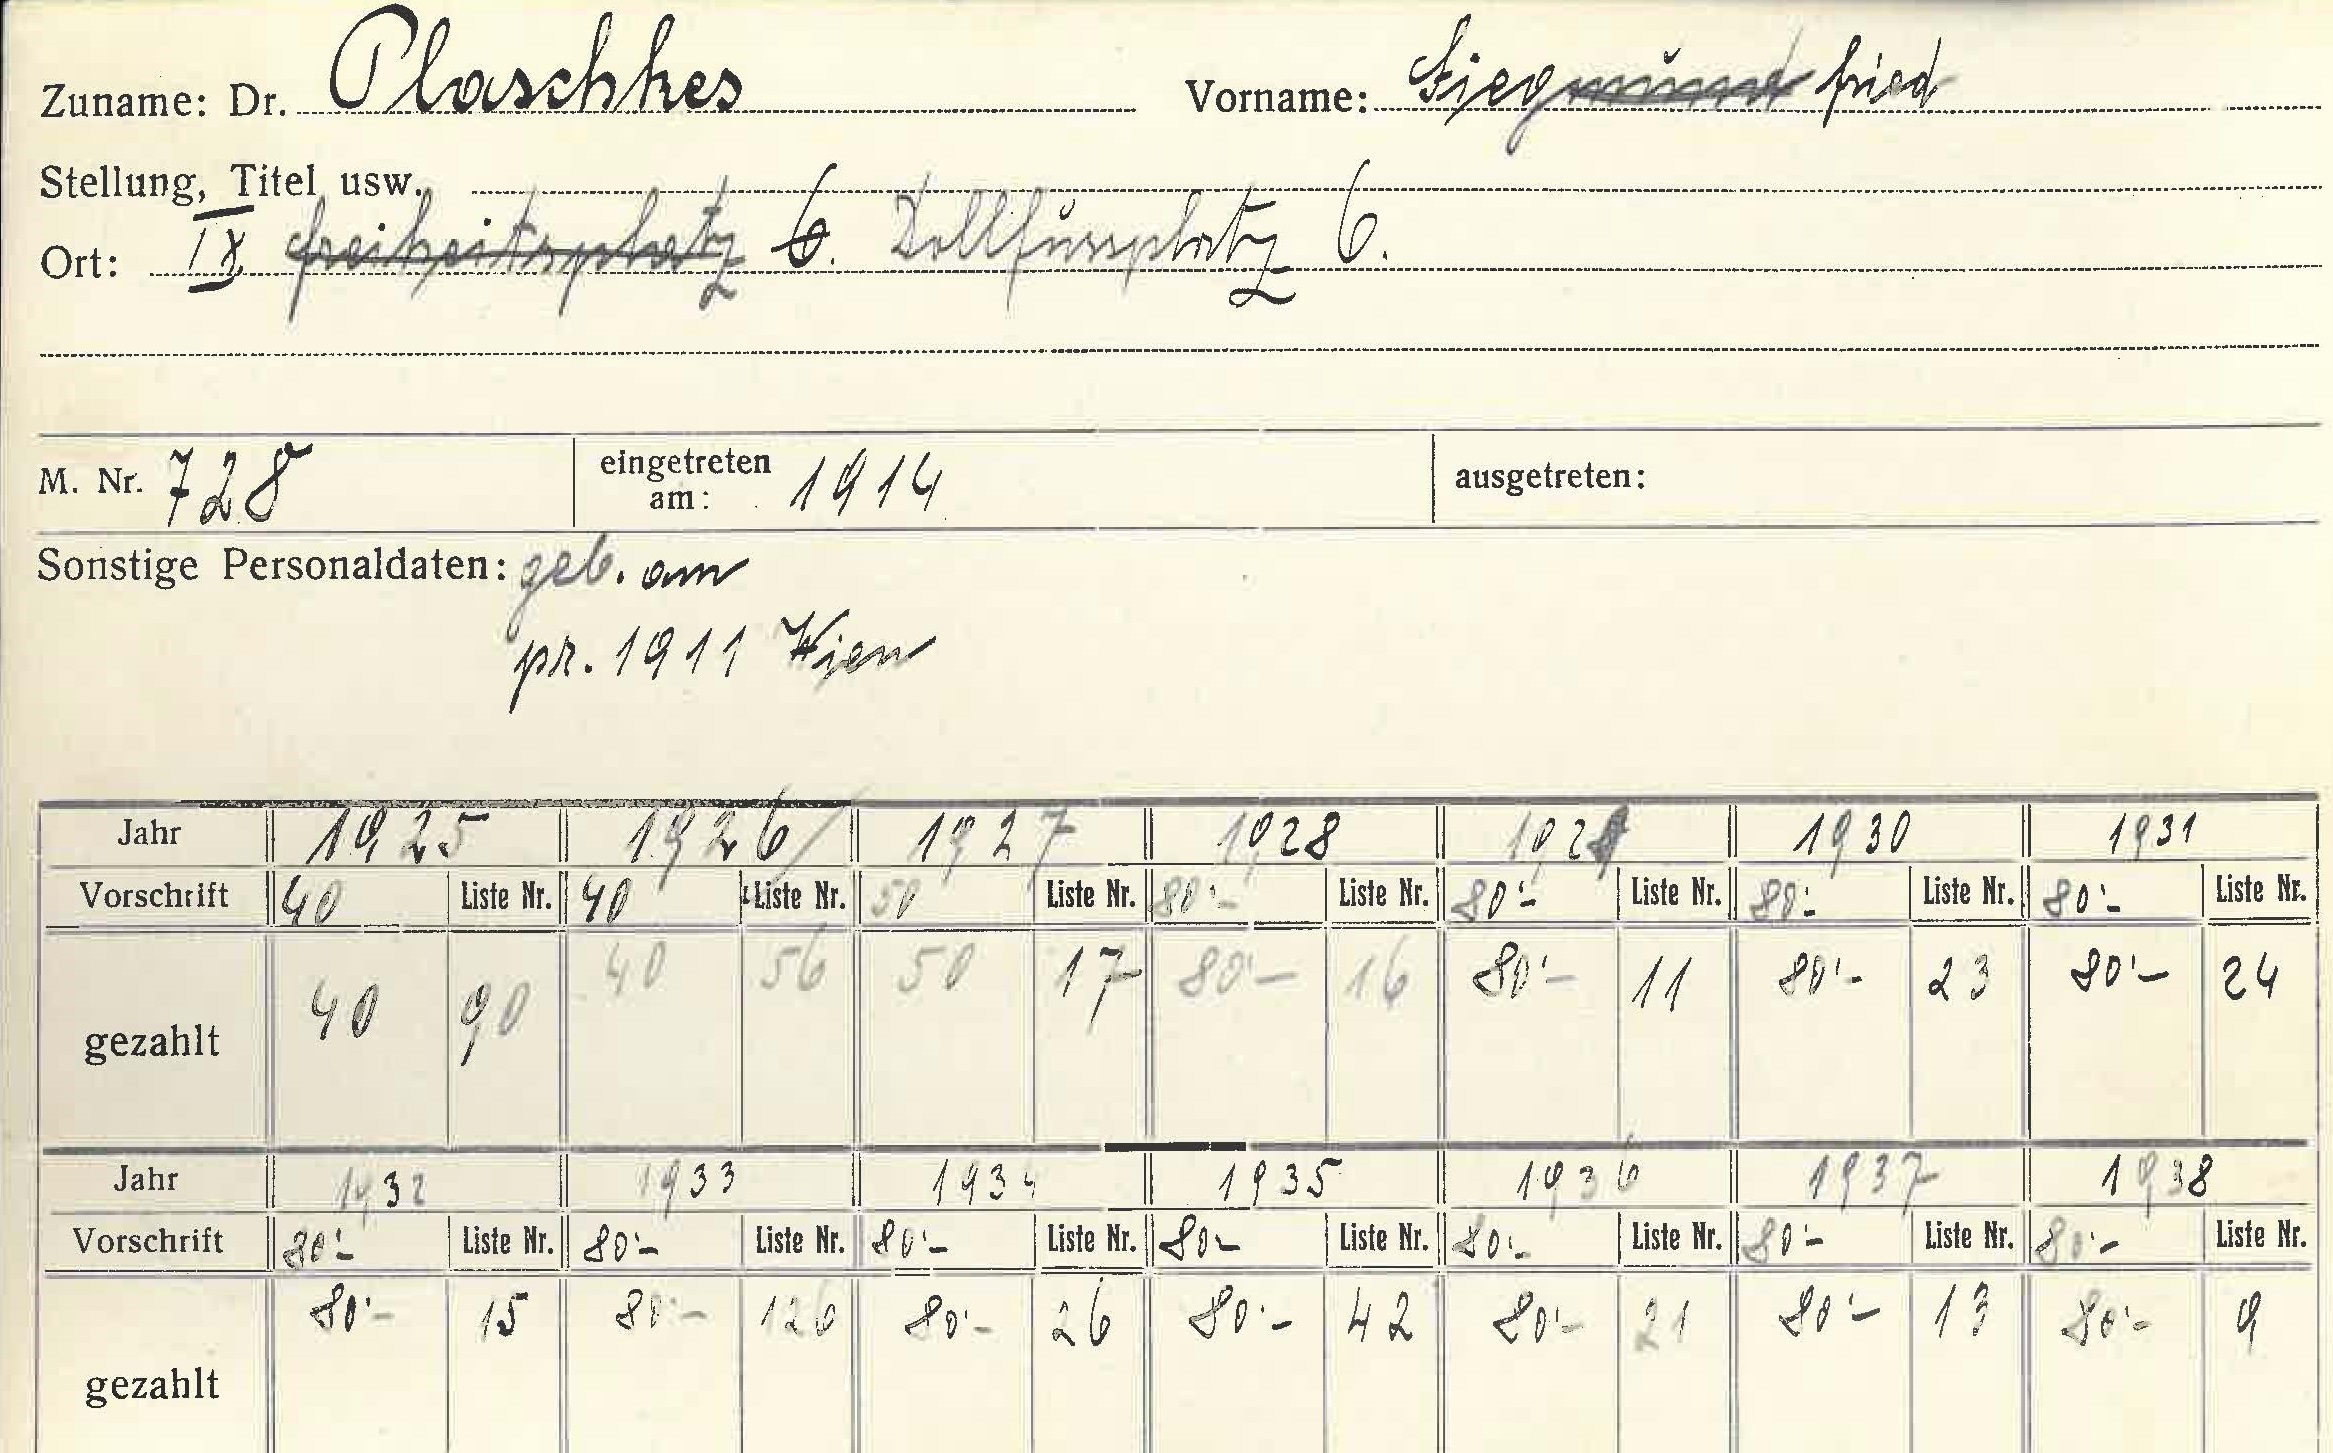 Zuname: Dr. Plaschkes Vorname: Siegmund fried
Stellung, Titel usw.
Ort: IX Freiheitsplatz 6. Dollfussplatz 6.
M. Nr. 728 eingetreten am: 1914 ausgetreten:
Sonstige Personaldaten: geb. am
pr. 1911 Wien
Jahr 1925 1926 1927 1928 1929 1930 1931
Vorschrift 40 Liste Nr. 40 Liste Nr. 50 Liste Nr. 80'- Liste Nr. 80'- Liste Nr. 80'- Liste Nr. 80'- Liste Nr.
gezahlt 40 90 40 56 50 17 80'- 16 80'- 11 80'- 23 80'- 24
Jahr 1932 1933 1934 1935 1936 1937 1938
Vorschrift 80'- Liste Nr. 80'- Liste Nr. 80'- Liste Nr. 80'- Liste Nr. 80'- Liste Nr. 80'- Liste Nr. 80'- Liste Nr.
gezahlt 80'- 15 80'- 126 80'- 26 80'- 42 80'- 21 80'- 13 80'- 9